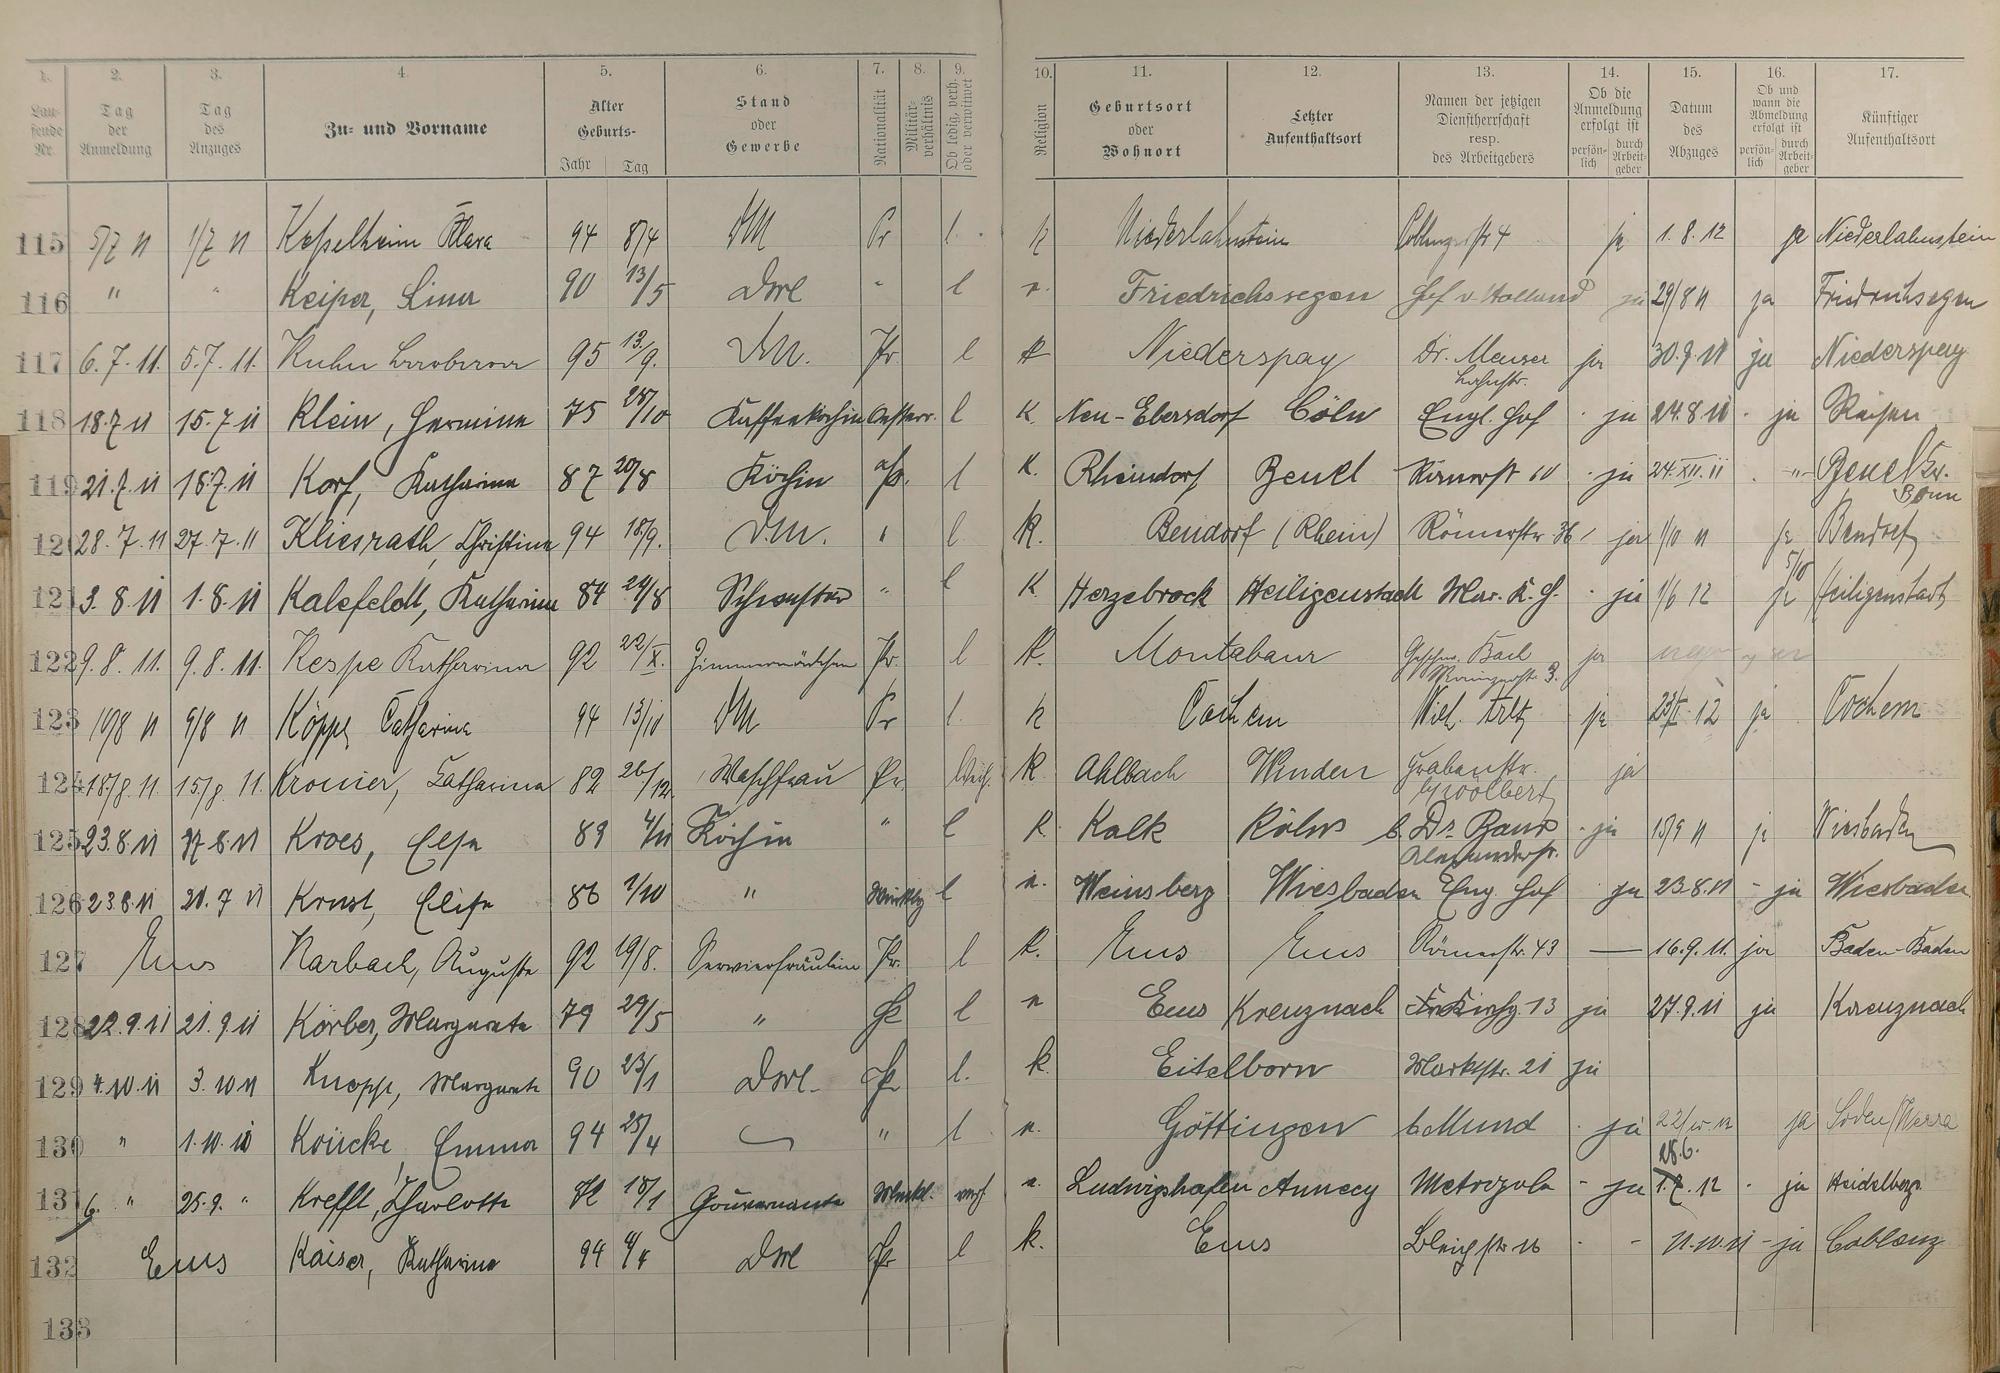 1. 2. 3. 4. 5. 6. 7. 8. 9. 10. 11. 12. 13. 14. 15. 16. 17.
Lau-
fende
Nr.
Tag
der
Anmeldung
Tag
des
Anzuges
Zu- und Vorname
Alter
Geburts-
Jahr Tag
Stand
oder
Gewerbe
Nationalität
Militär-
verhältnis
Ob ledig, verh.
oder verwitwet
Religion
Geburtsort
oder
Wohnort
Letzter
Aufenthaltsort
Namen der jetzigen
Dienstherrschaft
resp.
des Arbeitgebers
Ob die
Anmeldung
erfolgt ist
persön-
lich
durch
Arbeit-
geber
Datum
des
Abzuges
Ob und
wann die
Abmeldung
erfolgt ist
persön-
lich
durch
Arbeit-
geber
Künftiger
Aufenthaltsort
115 5/7 11 1/7 11 Kesselheim Klara 94 8/4 DM Pr l. k Niederlahnstein ja 1.8.12 ja Niederlahnstein
116 " " Keiper, Lina 90 13/5 " l Friedrichssegen Hof v. Holland ja 29/8 11 ja Friedrichsegen
117 6.7.11. 5.7.11. Kuhn Barbara 95 13./9. DM. Pr. l k Niederspay Dr. Meuser ja 30.9.11 ja Niederspay
Lahnstr.
118 18.7 11 15.7 11 Klein, Hermine 75 28/10 Kaffeeköchin Oesterr. l K. Neu-Ebersdorf Cöln Engl. Hof ja 24.8.11 ja Reisen
119 21.7.11 18.7.11 Korf, Katharina 87 20/8 Köchin Pr. l K. Rheindorf Beuel Römerst 10 ja 24.XII.11 " Beuel b.
Bonn
120 28.7.11 27.7.11 Kliesrath, Christine 94 18/9. D.M. " l K. Bendorf (Rhein) Römerstr 36 ja 1/10 11 ja Bendorf
5/10
121 3.8.11 1.8.11 Kalefeldt, Katharina 84 24/8 Schwester " l K Herzebrock Heiligenstadt Mar. K. H. ja 1/6 12 ja Heiligenstadt
122 9.8.11. 9.8.11. Kespe Katharina 92 22/X. Zimmermädchen Pr. l K. Montabaur Geschw. Bach ja
3.
123 10/8 11 9/8 11 Köppe Catharina 94 13/11 DM Pr l. k Cochem Wilh. ja 23/X 12 ja Cochem
124 18/8. 11. 15/8. 11. Kromer, Catharina 82 26/12. Waschfrau Pr. K. Ahlbach Winden Grabenstr. ja
125 23.8.11 17.8.11 Kroes, Else 89 4/11 Köchin " l K. Kalk Köln b. Dr. Baur ja 15/9 11 ja Wiesbaden
Alexanderstr.
126 23.8.11 21.7 11 Krust, Elise 86 1/10 " l Weinsberg Wiesbaden Eng. Hof ja 23.8.11 - ja Wiesbaden
127 Ems Karbach, Auguste 92 19/8. Servierfräulein Pr. l K. Ems Ems Römerstr. 43 — 16.9.11. ja Baden-Baden
128 22.9.11 21.9.11 Körber, Margarete 79 29/5 " Pr l Ems Kreuznach 13 ja 27.9.11 ja Kreuznach
129 4.10.11 3.10 11 Knopp, Margarete 90 23/1 Pr l. k. Eitelborn Marktstr. 21 ja
130 " 1.10.11 Emma 94 25/4 " l Göttingen b. Mund ja ja Soden/Werra
28.6.
131 6. " 25.9. " Krefft, Charlotte 15/1 Gouvernante verh. Ludwigshafen Annecy Metropole - ja 1.7.12 ja Heidelberg.
132 Ems Kaiser, Katharina 94 Pr l k. Ems Bleichstr 16 - 11.10.11 - ja Coblenz
133